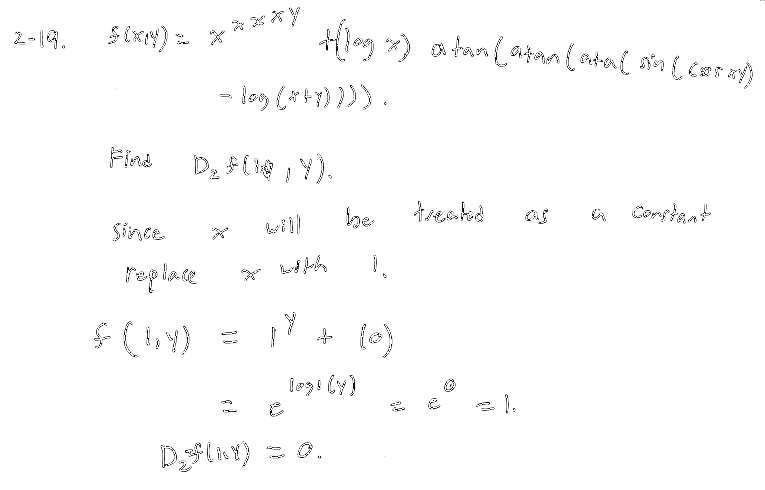 2-19. f(x,y) = x^x^x^x^y + (log x) atan(atan(ata( sin(cos xy)
- log(x+y)))).
Find D₂f(1, y).
since x will be treated as a constant
replace x with 1.
f(1,y) = 1^y + (0)
= e^log1(y) = e^0 = 1.
D₂f(1,y) = 0.